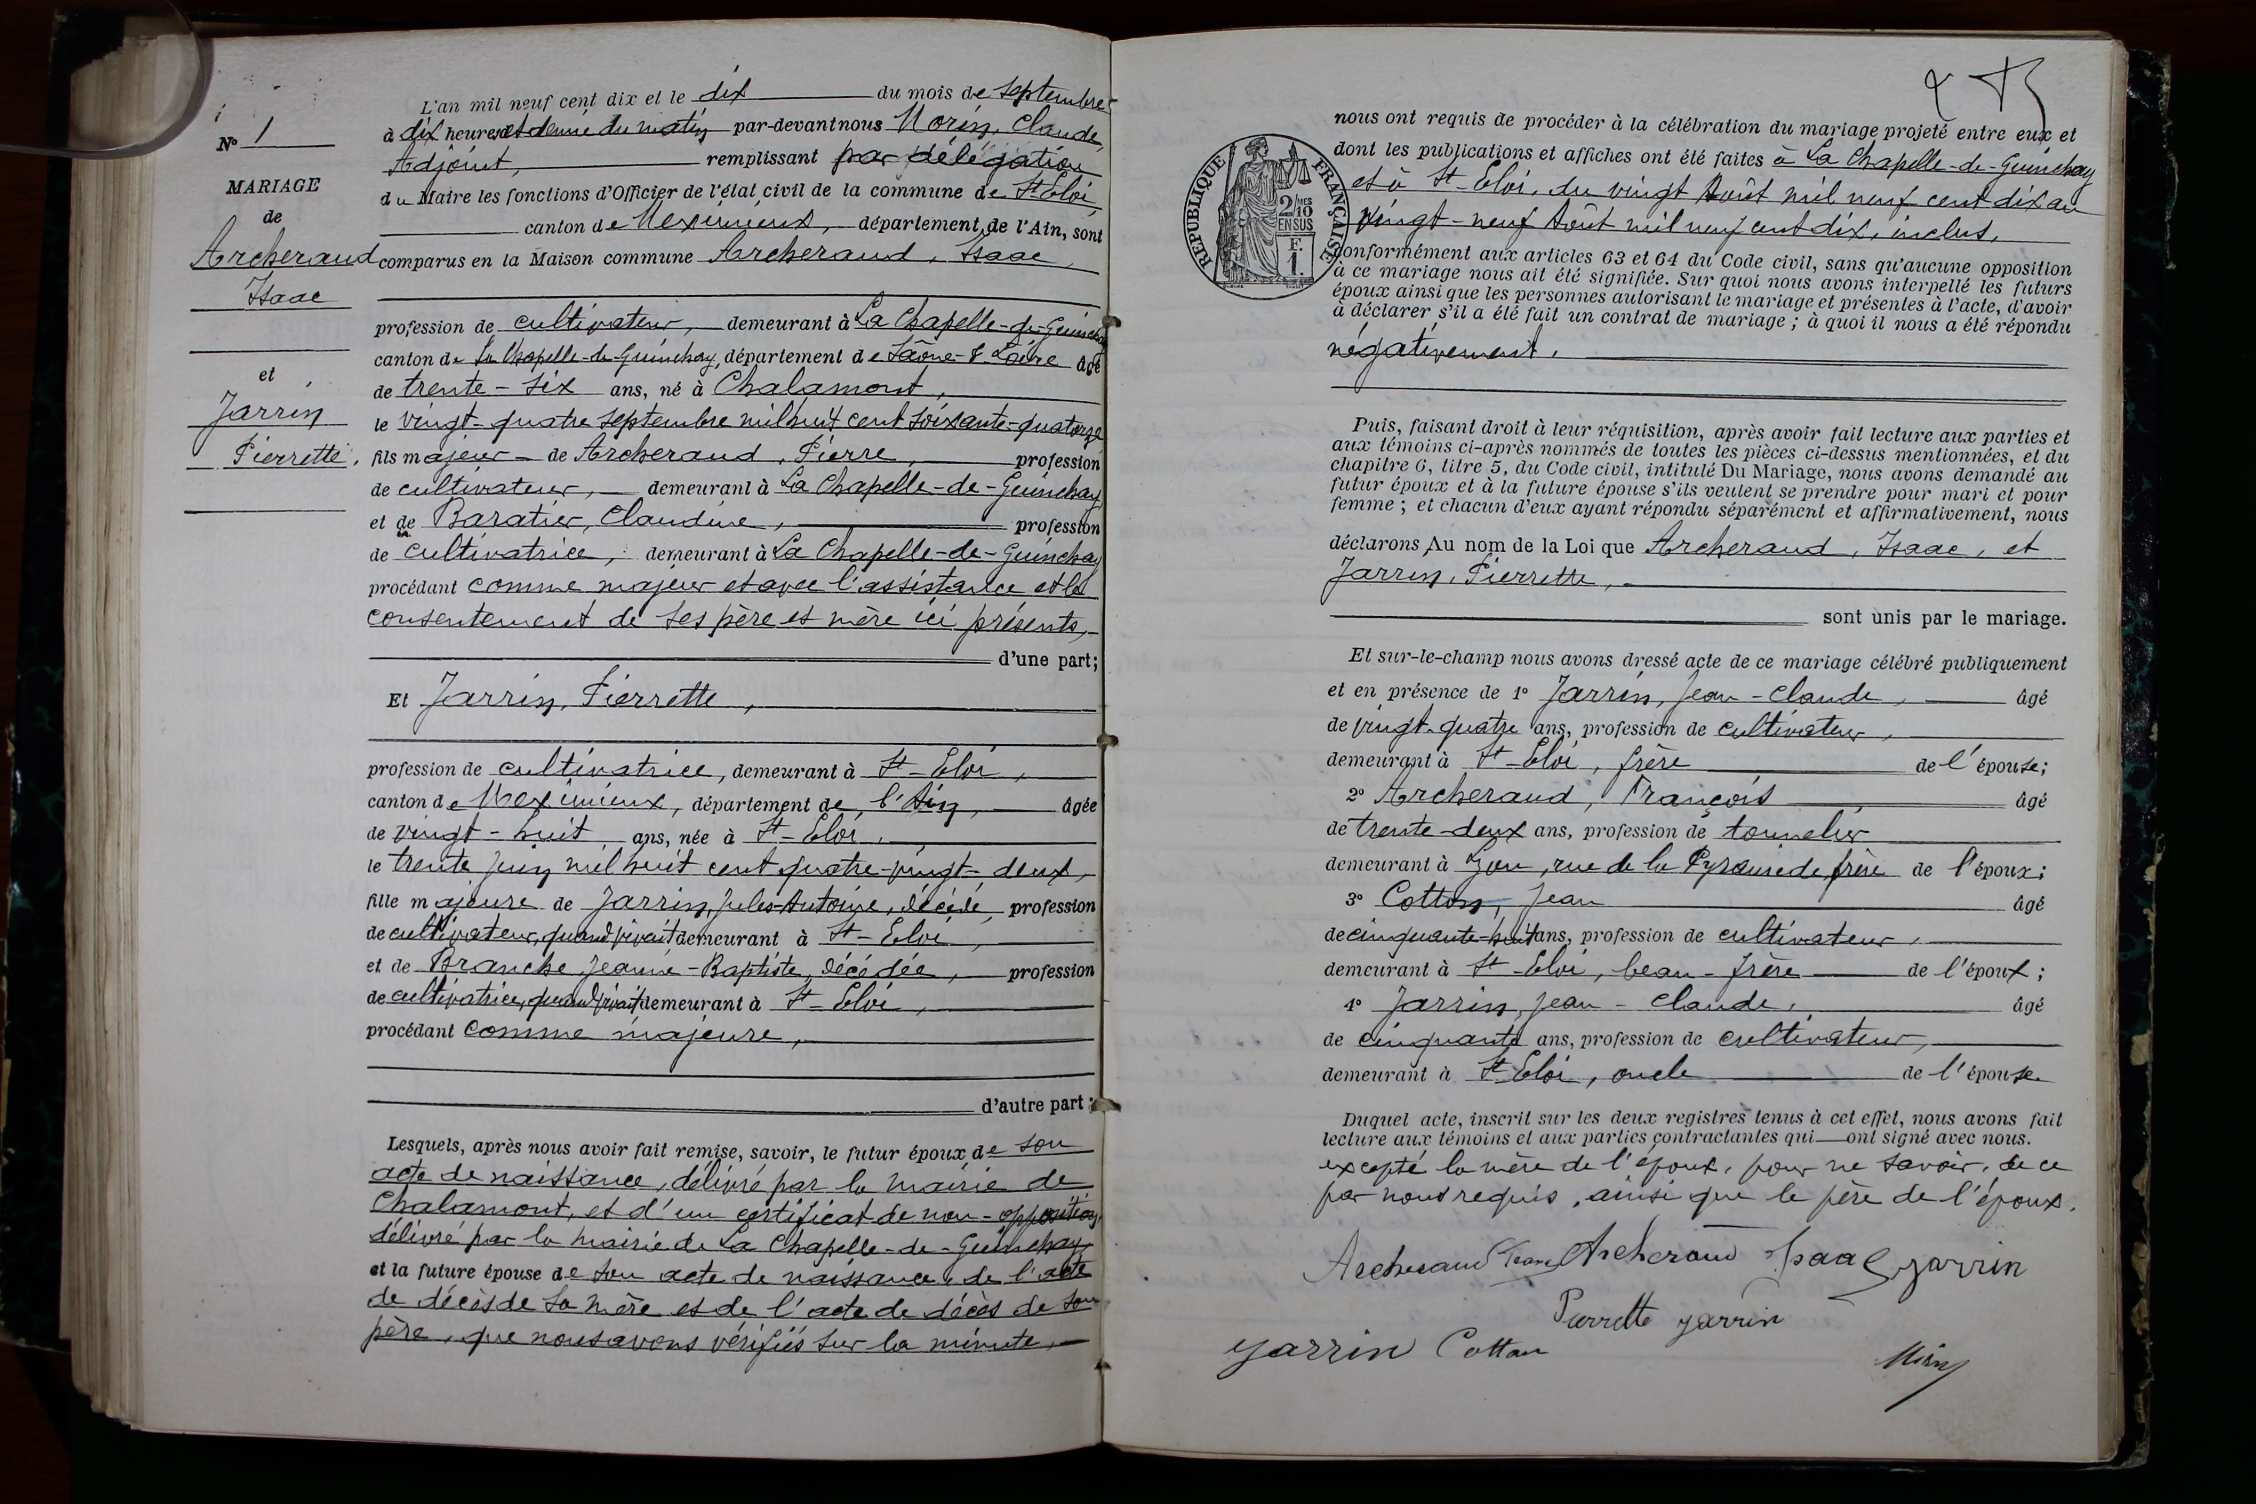 L'an mil neuf cent dix et le dix du mois de septembre
N° 1
à dix heures et demie du matin par-devant nous Morin, Claude,
Adjoint, remplissant par délégation
MARIAGE
du Maire les fonctions d'Officier de l'état civil de la commune de St-Eloi,
de
canton de Meximieux, département de l'Ain, sont
Archeraud
comparus en la Maison commune Archeraud, Isaac,
Isaac
profession de cultivateur, demeurant à La Chapelle-de-Guinchay
canton de La Chapelle-de-Guinchay, département de Saône-&-Loire âgé
et
de trente-six ans, né à Chalamont,
Jarrin
le vingt-quatre septembre mil huit cent soixante-quatorze
Pierrette.
fils majeur de Archeraud, Pierre, profession
de cultivateur, demeurant à La Chapelle-de-Guinchay
et de Baratier, Claudine, profession
de cultivatrice, demeurant à La Chapelle-de-Guinchay
procédant comme majeur et avec l'assistance et le
consentement de ses père et mère ici présents,
d'une part;
Et Jarrin, Pierrette,
profession de cultivatrice, demeurant à St-Eloi,
canton de Meximieux, département de l'Ain, âgée
de vingt-huit ans, née à St-Eloi,
le trente juin mil huit cent quatre-vingt-deux,
fille majeure de Jarrin, Jules-Antoine, décédé, profession
de cultivateur, quand vivait demeurant à St-Eloi,
et de Branche Jeanne-Baptiste, décédée, profession
de cultivatrice, quand vivait demeurant à St-Eloi,
procédant comme majeure,
d'autre part;
Lesquels, après nous avoir fait remise, savoir, le futur époux de son
acte de naissance, délivré par la mairie de
Chalamont, et d'un certificat de non-opposition
délivré par la mairie de La Chapelle-de-Guinchay
et la future épouse de son acte de naissance, de l'acte
de décès de sa mère et de l'acte de décès de son
père, que nous avons vérifiés sur la minute,
nous ont requis de procéder à la célébration du mariage projeté entre eux et
dont les publications et affiches ont été faites à La Chapelle-de-Guinchay
et à St-Eloi, du vingt Août mil neuf cent dix au
vingt-neuf Août mil neuf cent dix, inclus,
RÉPUBLIQUE FRANÇAISE
2/10 MES
EN SUS
F.
1.
conformément aux articles 63 et 64 du Code civil, sans qu'aucune opposition
à ce mariage nous ait été signifiée. Sur quoi nous avons interpellé les futurs
époux ainsi que les personnes autorisant le mariage et présentes à l'acte, d'avoir
à déclarer s'il a été fait un contrat de mariage; à quoi il nous a été répondu
négativement.
Puis, faisant droit à leur réquisition, après avoir fait lecture aux parties et
aux témoins ci-après nommés de toutes les pièces ci-dessus mentionnées, et du
chapitre 6, titre 5, du Code civil, intitulé Du Mariage, nous avons demandé au
futur époux et à la future épouse s'ils veulent se prendre pour mari et pour
femme; et chacun d'eux ayant répondu séparément et affirmativement, nous
déclarons Au nom de la Loi que Archeraud, Isaac, et
Jarrin, Pierrette,
sont unis par le mariage.
Et sur-le-champ nous avons dressé acte de ce mariage célébré publiquement
et en présence de 1° Jarrin, Jean-Claude, âgé
de vingt-quatre ans, profession de cultivateur,
demeurant à St-Eloi, frère de l'épouse;
2° Archeraud, François âgé
de trente-deux ans, profession de tonnelier
demeurant à Lyon, rue de la Pyramide, frère de l'époux;
3° Cotton, Jean âgé
de cinquante-huit ans, profession de cultivateur,
demeurant à St-Eloi, beau-frère de l'époux;
4° Jarrin, Jean-Claude, âgé
de cinquante ans, profession de cultivateur,
demeurant à St-Eloi, oncle de l'épouse.
Duquel acte, inscrit sur les deux registres tenus à cet effet, nous avons fait
lecture aux témoins et aux parties contractantes qui ont signé avec nous.
excepté la mère de l'époux, pour ne savoir, de ce
par nous requis, ainsi que le père de l'époux.
Archeraud Archeraud Isaac Jarrin
Pierrette Jarrin
Jarrin Cotton Morin